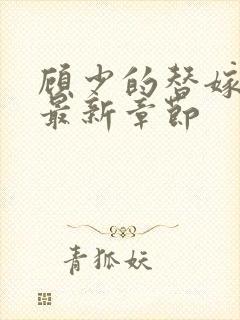 顾少的替嫁
最新章节
青狐妖